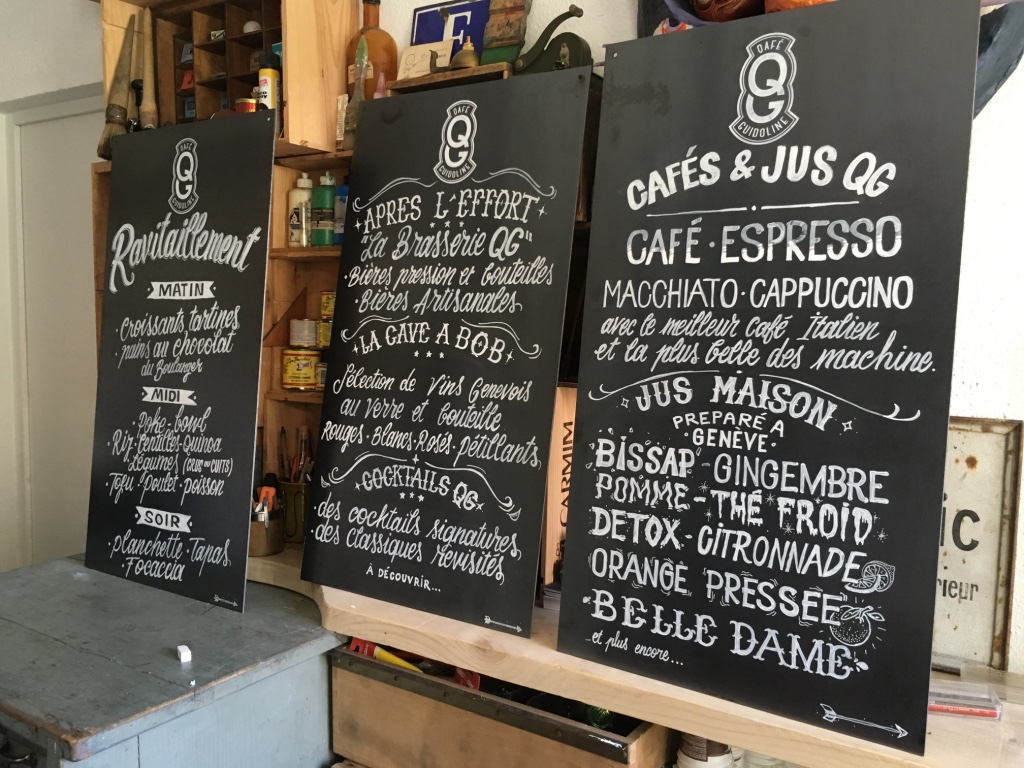 CAFÉ
QG
GUIDOLINE
Ravitaillement
MATIN
Croissants tartines
pains au chocolat
du Boulanger
MIDI
Poke-bowl
Riz, lentilles, quinoa
Légumes (CRUS OU CUITS)
Tofu Poulet poisson
SOIR
planchette · Tapas
· Focaccia
CAFÉ
QG
GUIDOLINE
APRES L'EFFORT
"La Brasserie QG"
· Bières pression et bouteilles
· Bières Artisanales
LA CAVE A BOB
Sélection de Vins Genevois
au verre et bouteille
Rouges · Blancs · Rosés · Pétillants
COCKTAILS QG
· des cocktails signatures
· des classiques revisités
À DÉCOUVRIR...
CAFÉ
QG
GUIDOLINE
CAFÉS & JUS QG
CAFÉ · ESPRESSO
MACCHIATO · CAPPUCCINO
avec le meilleur café Italien
et la plus belle des machine.
JUS MAISON
PREPARÉ A
· GENÈVE ·
BISSAP - GINGEMBRE
POMME - THÉ FROID
DETOX - CITRONNADE
ORANGE PRESSÉE
BELLE DAME
et plus encore...
CARMIM
IC
rieur
E